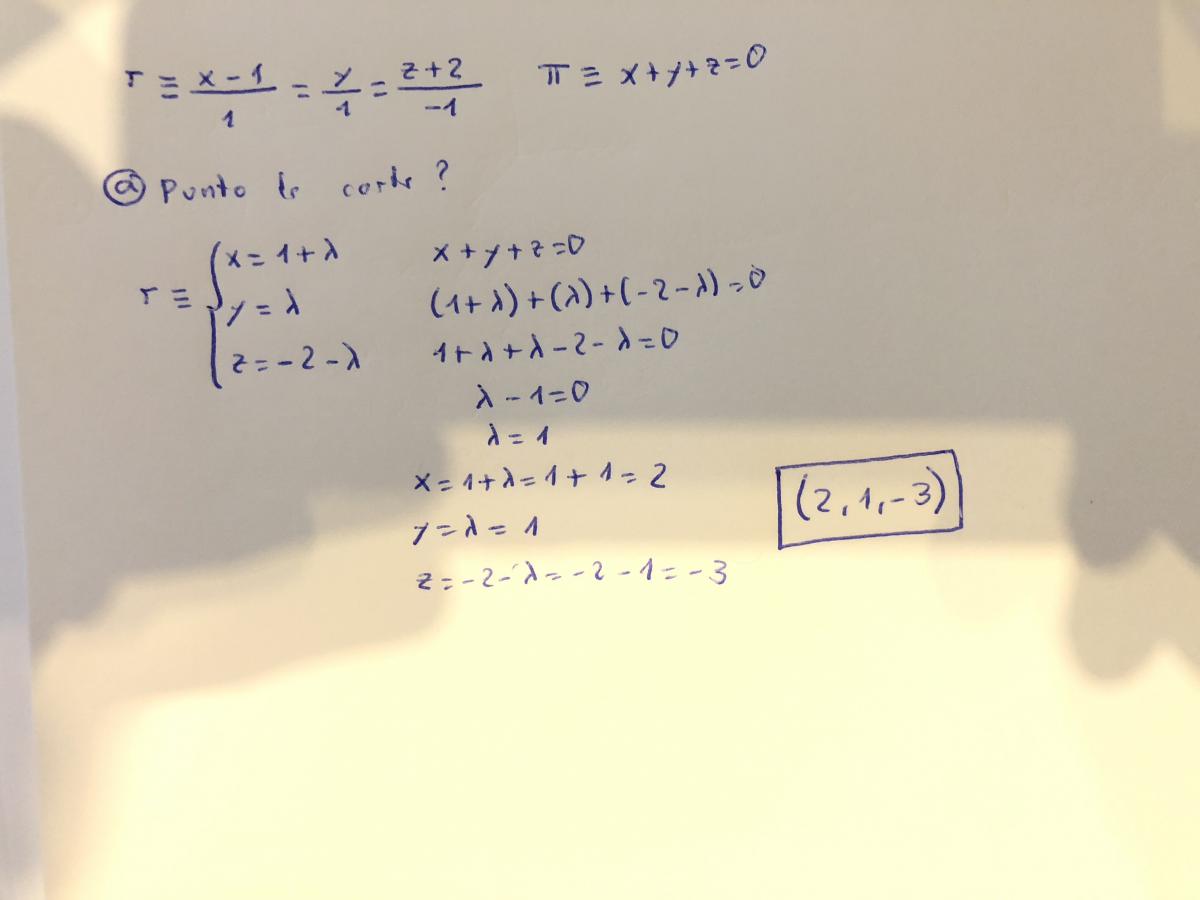 r ≡ x-1/1 = y/1 = z+2/-1 π ≡ x+y+z=0
ⓐ Punto de corte?
r ≡ { x=1+λ
y=λ
z=-2-λ
x+y+z=0
(1+λ)+(λ)+(-2-λ)=0
1+λ+λ-2-λ=0
λ-1=0
λ=1
x=1+λ=1+1=2
y=λ=1
z=-2-λ=-2-1=-3
(2,1,-3)